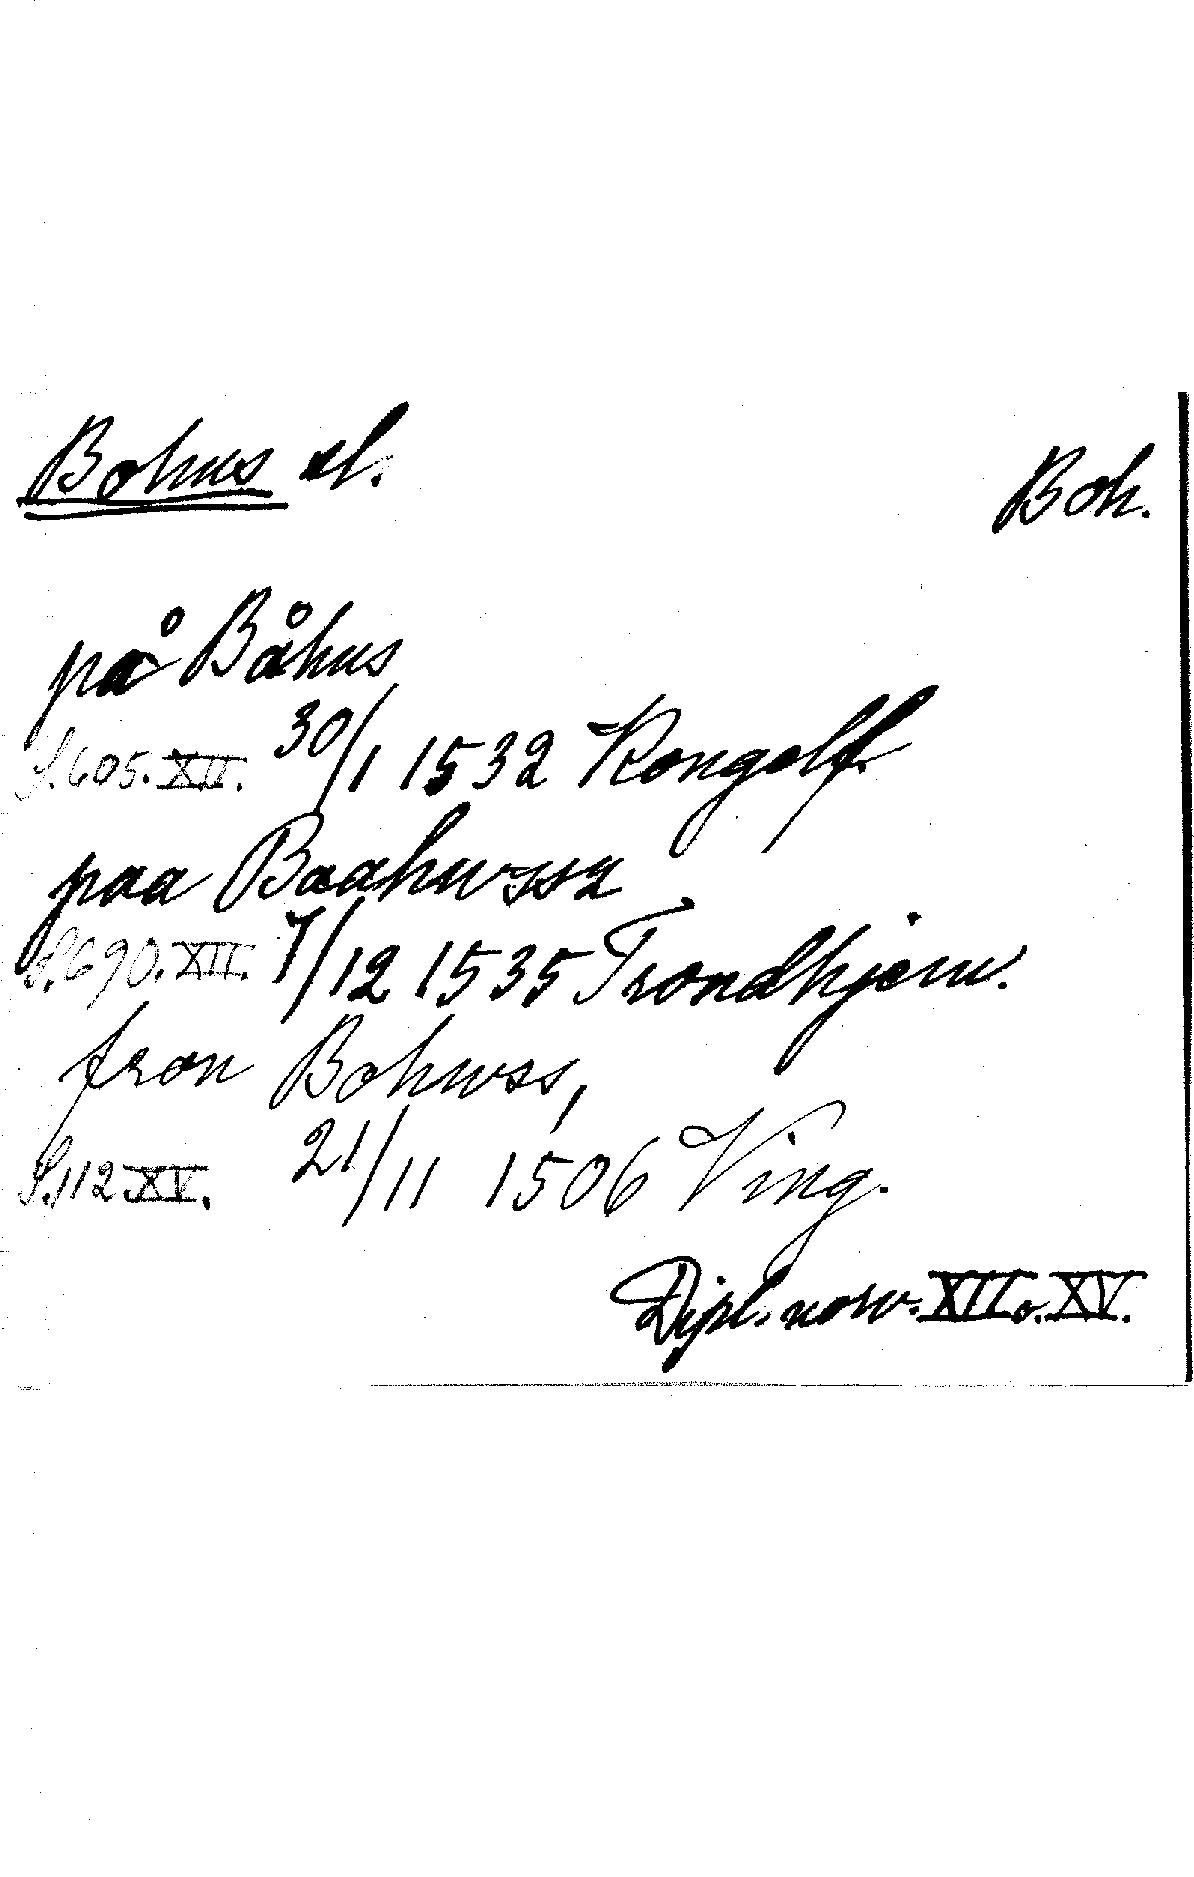 Bohus sl. Boh.
på Båhus
S. 605. XII. 30/1 1532 Kongelf.
paa Baahwssz
S. 690. XII. 7/12 1535 Trondhjem.
fron Bohwss,
S. 112 XV. 21/11 1506 Ving.
Dipl. norv. XII o. XV.